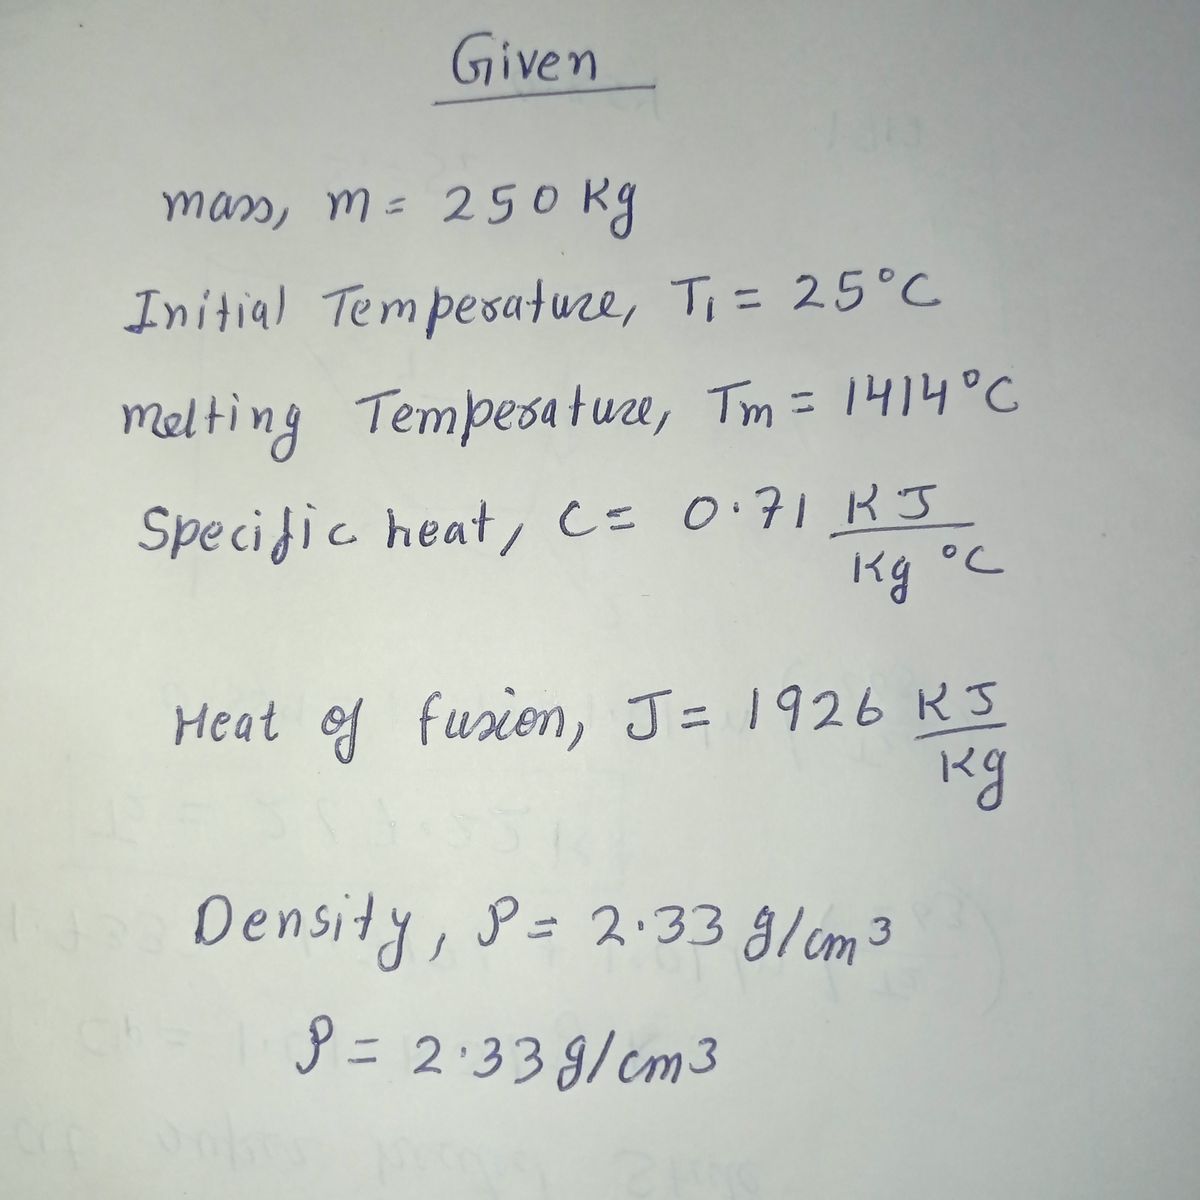 Given
mass, m = 250 Kg
Initial Temperature, T₁ = 25°C
melting Temperature, Tm = 1414°C
Specific heat, C = 0.71 KJ
Kg °C
Heat of fusion, J = 1926 KJ
Kg
Density, ρ = 2.33 g/cm³
ρ = 2.33 g/cm3